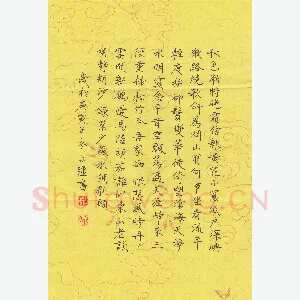 秋色漸將晚霜信報黃花小窗低戶深映
微路繞欹斜為問山翁何事坐看流年
輕度拚卻鬢雙華徙倚望滄海天淨
水明霞念平昔空飄蕩遍天涯歸來三
徑重掃松竹本吾家卻恨悲風時起冉冉
雲間新雁邊馬怨胡笳誰似東山老談
笑靜胡沙 錄葉少蘊水調歌頭